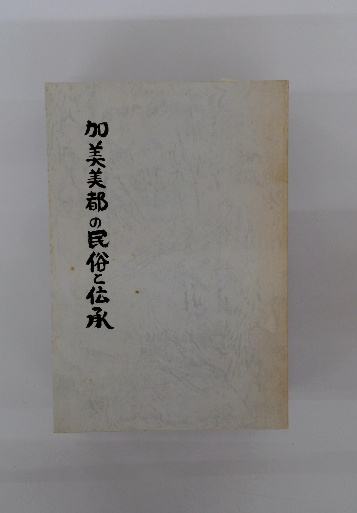 加美美都の民俗と伝承